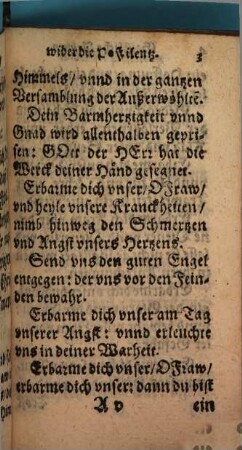 wider die Pestilentz. 3
Himmels / vnnd in der gantzen
Versamblung der Außerwöhltē.
Dein Barmhertzigkeit vnnd
Gnad wird allenthalben gepri-
sen: GOtt der HErr hat die
Werck deiner Händ gesegnet.
Erbarme dich vnser / O Fraw /
vnd heyle vnsere Kranckheiten /
nimb hinweg den Schmertzen
vnd Angst vnsers Hertzens.
Send vns den guten Engel
entgegen: der vns vor den Fein-
den bewahr.
Erbarme dich vnser am Tag
vnserer Angst: vnnd erleuchte
vns in deiner Warheit.
Erbarme dich vnser / O Fraw /
erbarme dich vnser: dann du bist
A v ein